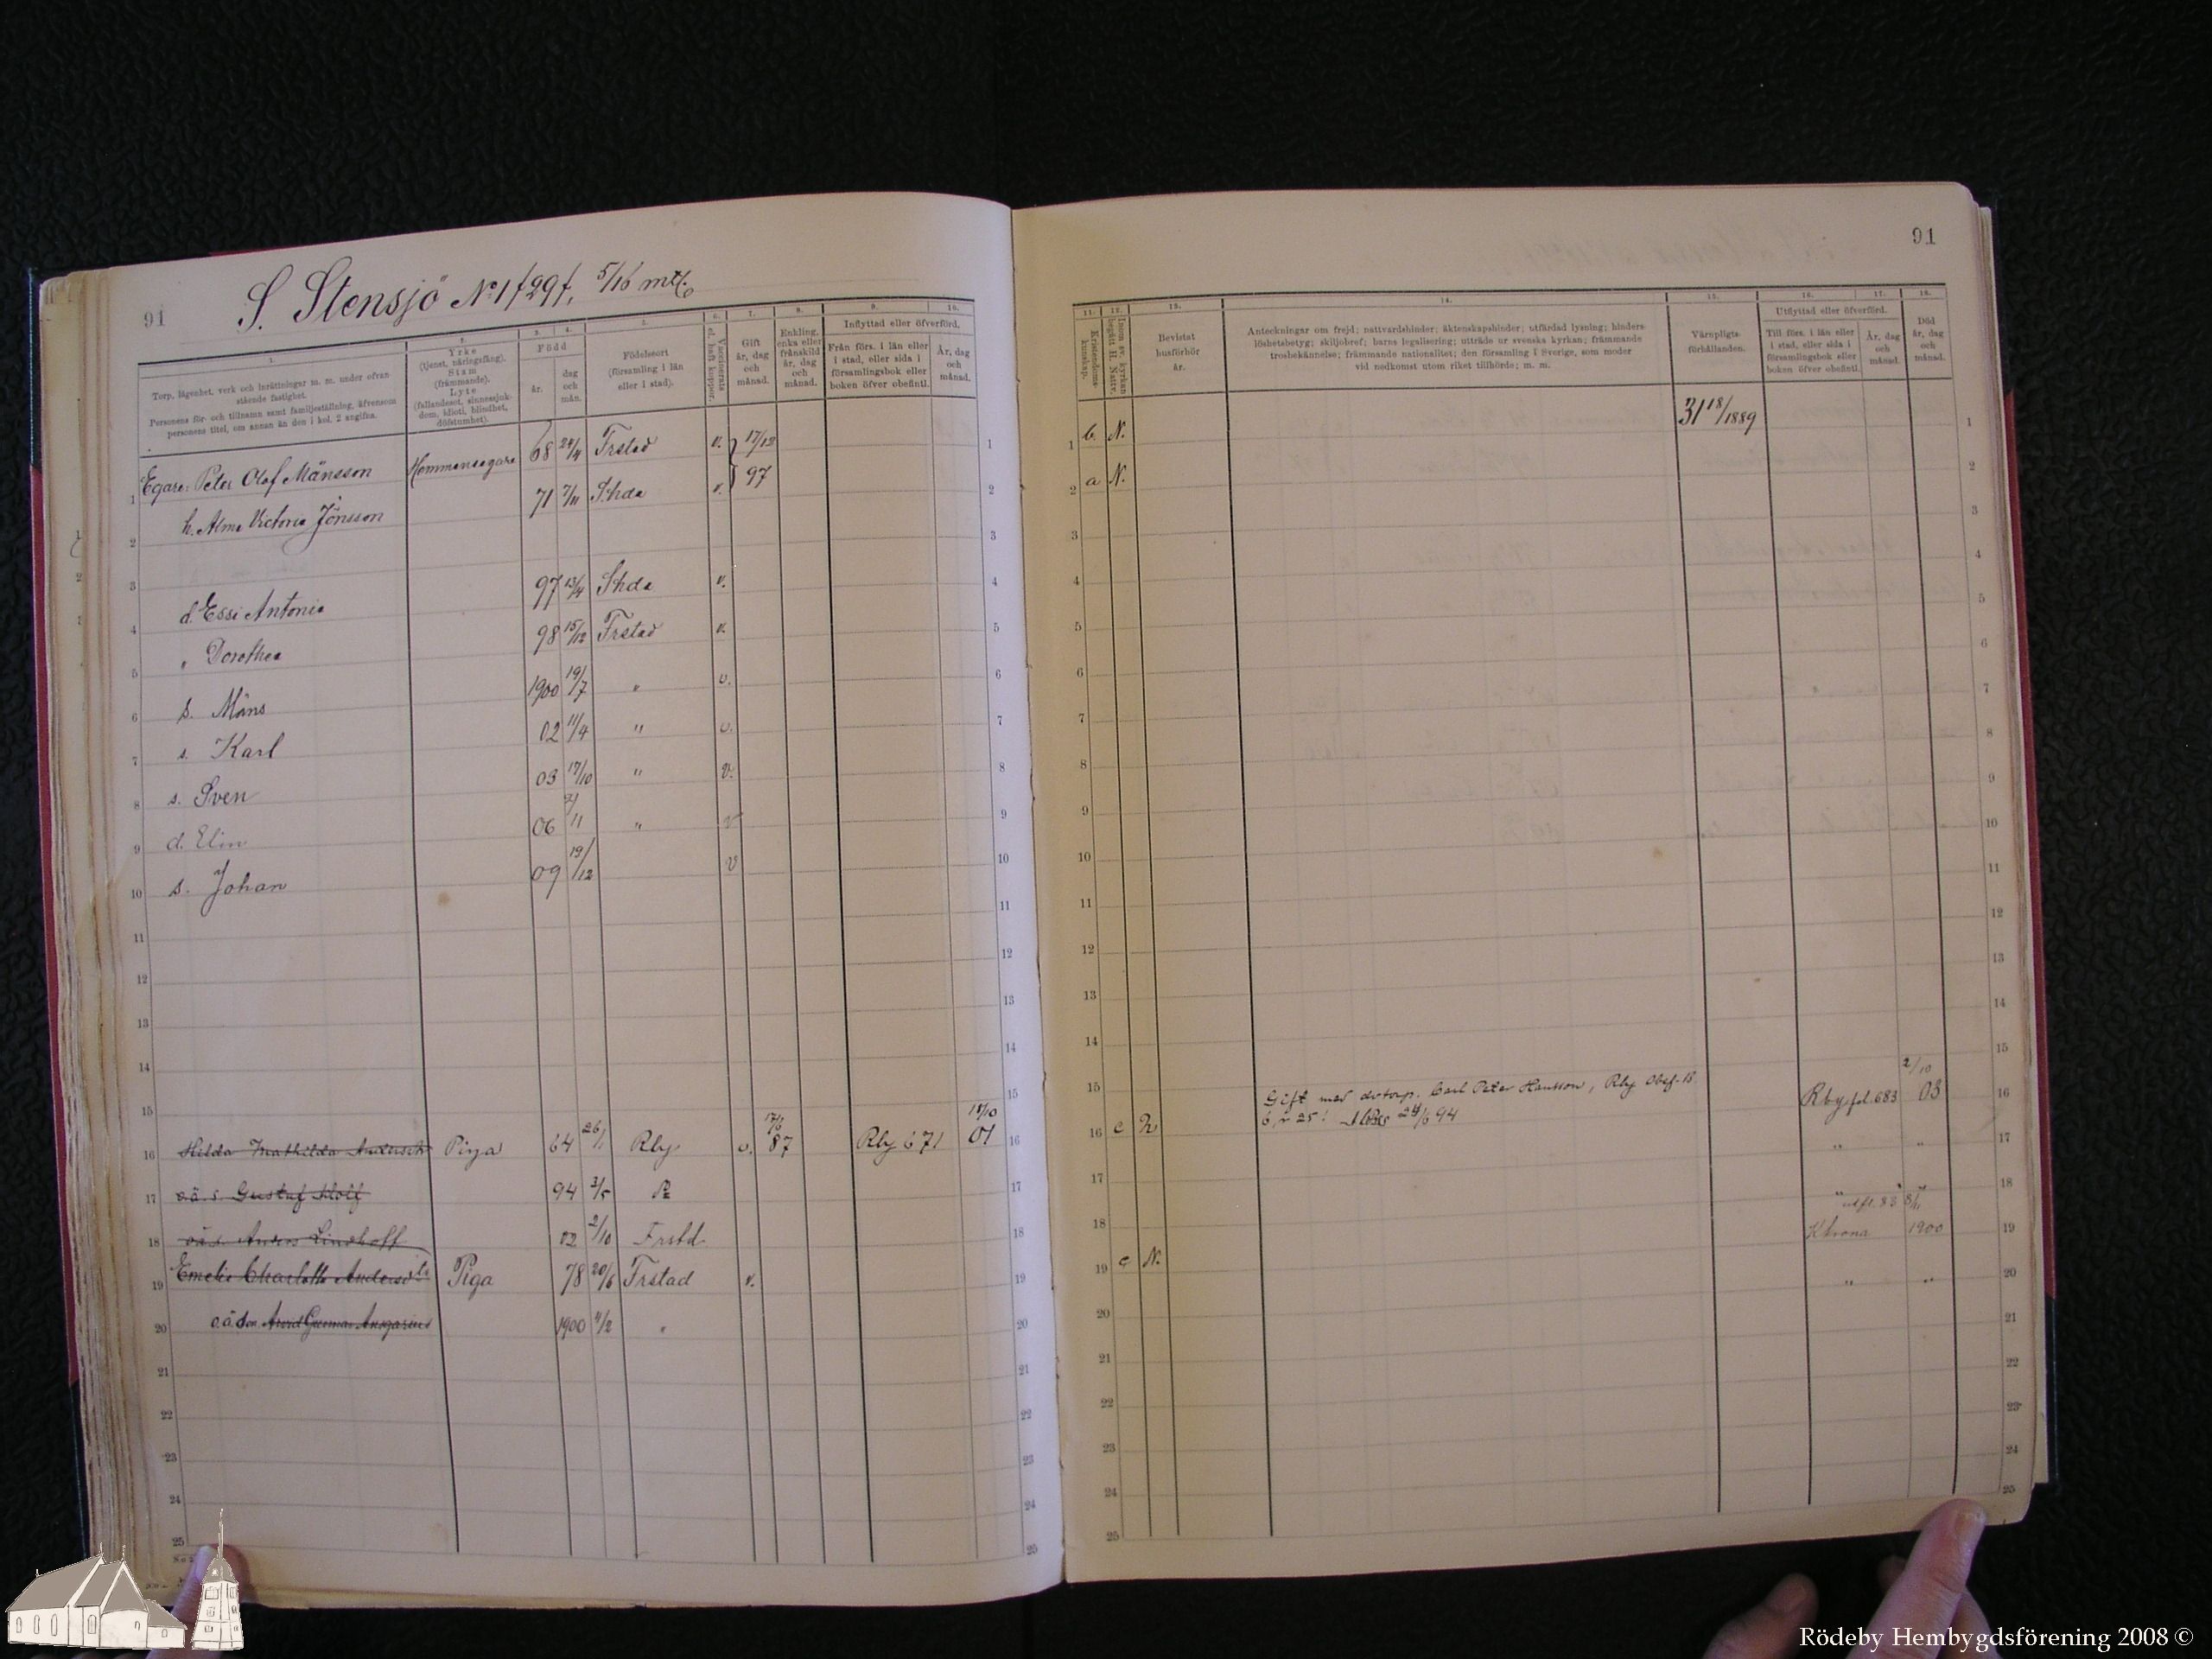 91
S. Stensjö No 1 /29/, 5/16 mtl.
1.
Torp, lägenhet, verk och inrättningar m. m. under ofvan-
stående fastighet.
Personens för- och tillnamn samt familjeställning, äfvensom
personens titel, om annan än den i kol. 2 angifna.
2.
Yrke
(tjenst, näringsfång).
Stam
(främmande).
Lyte
(fallandesot, sinnessjuk-
dom, idioti, blindhet,
döfstumhet).
3. 4.
Född
år.
dag
och
mån.
5.
Födelseort
(församling i län
eller i stad).
6.
Vaccinerats
el. haft koppor.
7.
Gift
år, dag
och
månad.
8.
Enkling,
enka eller
frånskild
år, dag
och
månad.
9. 10.
Inflyttad eller öfverförd.
Från förs. i län eller
i stad, eller sida i
församlingsbok eller
boken öfver obefintl.
År, dag
och
månad.
1 Egare: Peter Olof Månsson Hemmansegare 68 24/4 Frstad v. 17/12 1
2 h. Alma Victoria Jönsson 71 7/11 Shda v. 97 2
3 3
4 d. Essi Antonia 97 13/4 Shda v. 4
5 „ Dorothea 98 15/12 Frstad v. 5
6 s. Måns 1900 19/7 „ v. 6
7 s. Karl 02 11/4 " v. 7
8 s. Sven 03 17/10 " v. 8
9 d. Elin 06 /11 " v 9
10 s. Johan 09 19/12 v 10
11 11
12 12
13 13
14 14
15 15
16 Hilda Mathilda Piga 64 26/1 Rby v. 87 Rby 671 01 16
17 o.ä. s. Gustaf 94 3/5 17
18 o.ä.s. Anders 02 2/10 Frstd 18
19 Emelie Charlotta Piga 78 20/6 Frstad v. 19
20 o.ä. Arvid Gunnar Ansgarius 1900 4/2 „ 20
21 21
22 22
23 23
24 24
25 25
91
11.
Kristendoms-
kunskap.
12.
Inom sv. kyrkan
begått H. Nattv.
13.
Bevistat
husförhör
år.
14.
Anteckningar om frejd; nattvardshinder; äktenskapshinder; utfärdad lysning; hinders-
löshetsbetyg; skiljobref; barns legalisering; utträde ur svenska kyrkan; främmande
trosbekännelse; främmande nationalitet; den församling i Sverige, som moder
vid nedkomst utom riket tillhörde; m. m.
15.
Värnpligts-
förhållanden.
16. 17.
Utflyttad eller öfverförd.
Till förs. i län eller
i stad, eller sida i
församlingsbok eller
boken öfver obefintl.
År, dag
och
månad.
18.
Död
år, dag
och
månad.
1 b. N. 31 18/1889 1
2 a N. 2
3 3
4 4
5 5
6 6
7 7
8 8
9 9
10 10
11 11
12 12
13 13
14 14
15 15
Gift med Carl Peter Hansson, Rby
16 c N 24/6 94 Rby fol. 683 2/10 03 16
17 „ „ 17
18 18
19 c N. 1900 19
20 „ „ 20
21 21
22 22
23 23
24 24
25 25
Rödeby Hembygdsförening 2008 ©